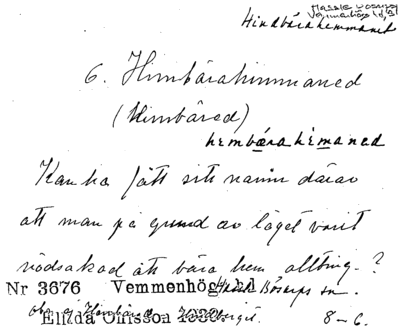 Hassle Bösarp
Vemmenhögs hd, Sk
Hindbärahemmanet
6. Himbärahimmaned
(Himbäred)
hembærahemaned
Kan ha fått sitt namn därav
att man på grund av läget varit
nödsakad att bära hem allting.?
Nr 3676 Vemmenhögs hd Hassle Bösarps sn.
Ellida Ohlsson 8-6.